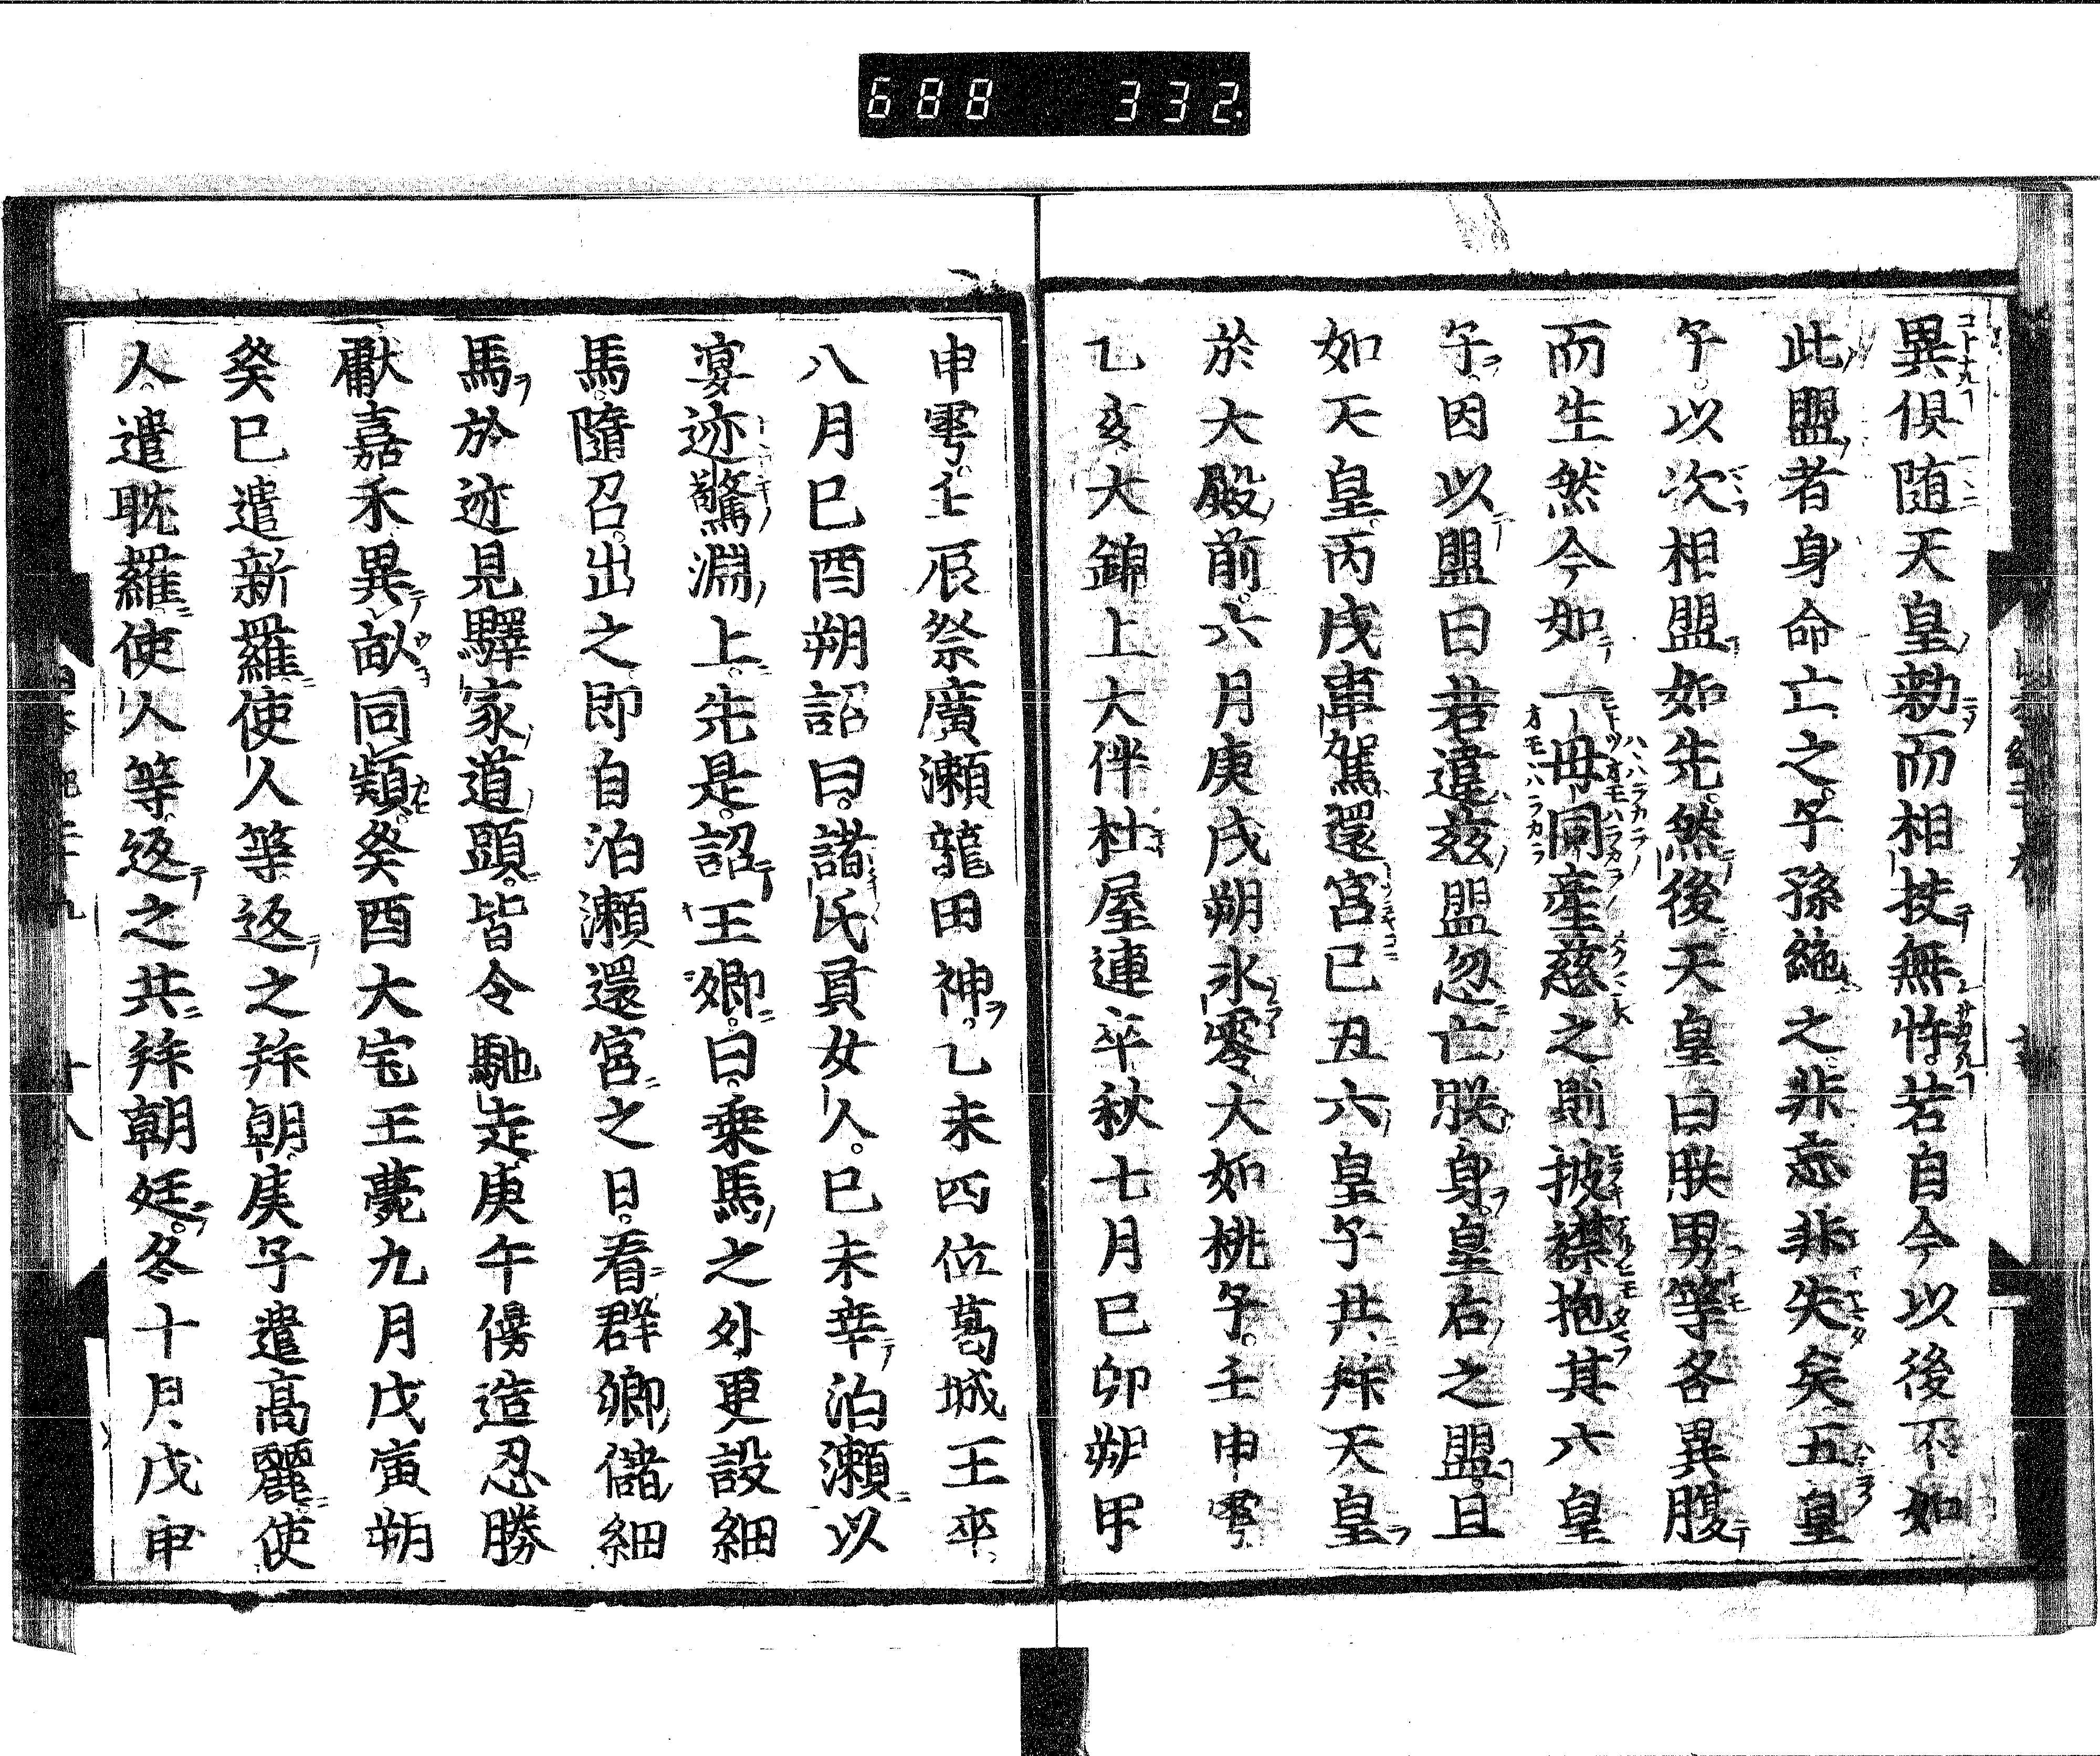 688 332
異倶随天皇勅而相扶無忤若自今以後不如
此盟者身命亡之子孫絶之非忘非失矣五皇
子以次相盟如先然後天皇曰朕男等各異腹
而生然今如一母同産慈之則披襟抱其六皇
子因以盟曰若違茲盟忽亡朕身皇后之盟且
如天皇丙戌車駕還宮己丑六皇子共拜天皇
於大殿前六月庚戌朔氷零大如桃子壬申雩
乙亥大錦上大伴杜屋連卒秋七月己卯朔甲
申雩壬辰祭廣瀬龍田神乙未四位葛城王卒
八月己酉朔詔曰諸氏貢女人己未幸泊瀬以
宴迹驚淵上先是詔王卿曰乗馬之外更設細
馬隨召出之即自泊瀬還宮之日看群卿儲細
馬於迹見驛家道頭皆令馳走庚午縵造忍勝
獻嘉禾異畝同頴癸酉大宅王薨九月戊寅朔
癸巳遣新羅使人等返之拜朝庚子遣高麗使
人遣耽羅使人等返之共拜朝廷冬十月戊申